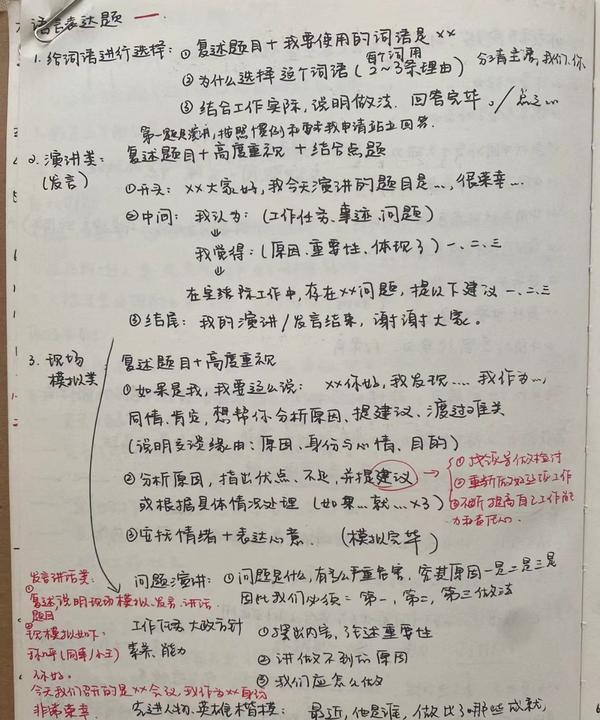 语言表达题 一.
1. 给词语进行选择: ① 复述题目+我要使用的词语是 ××
② 为什么选择这个词语 (每个词用 2~3条理由) 分清主语,我们、你
③ 结合工作实际,说明做法. 回答完毕。/总之…
第一题是演讲,按照惯例和要求我申请站立回答.
2. 演讲类: 复述题目+高度重视 + 结合点题
(发言) ①开头: ××大家好,我今天演讲的题目是…, 很荣幸…
②中间: 我认为: (工作任务、事迹、问题)
↓
我觉得: (原因、重要性、体现了) 一、二、三
↓
在实际工作中,存在××问题,提以下建议 一、二、三
③ 结尾: 我的演讲/发言结束,谢谢大家。
3. 现场模拟类: 复述题目+高度重视
①如果是我,我要这么说: ××你好,我发现…. 我作为…,
同情、肯定,想帮你分析原因、提建议、渡过难关
(说明交谈缘由: 原因、身份与心情、目的)
②分析原因,指出优点、不足,并提建议 → ①找领导做检讨
或根据具体情况处理 (如果…就…×3) ②重新做好这项工作
③不断提高自己工作能力和责任心.
③安抚情绪+表达心意. (模拟完毕)
发言讲话类: 问题演讲: ①问题是什么,有多么严重危害,究其原因一是二是三是
①复述说明现场模拟、发言、讲话题目 因此我们必须: 第一,第二,第三做法
②现模拟如下: 工作任务 大政方针 ①摆出内容,论述重要性
(同事/小王) 素养、能力 ② 讲做不到的原因
你好。 ③ 我们应怎么做
今天我们召开的是××会议,我作为××身份
非常荣幸 先进人物、英雄楷模: 最近,他是谁,做出了哪些成就,